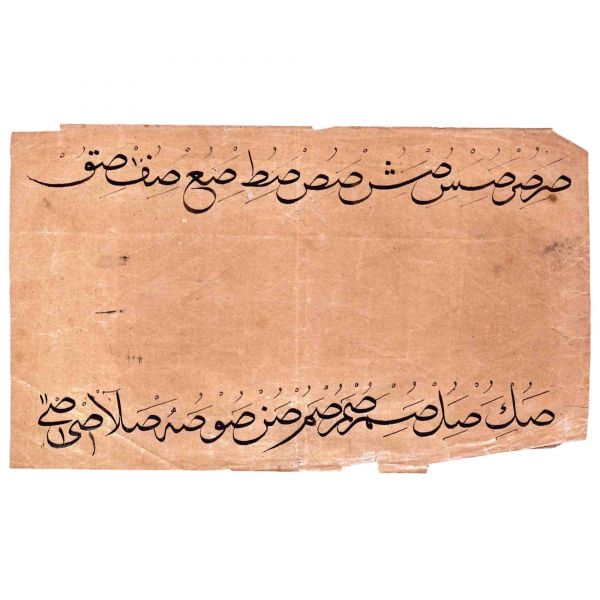 صر صر صس صش صص صط صع صف صق
صك صل صم صم صم صن صو صه صلا صى صى